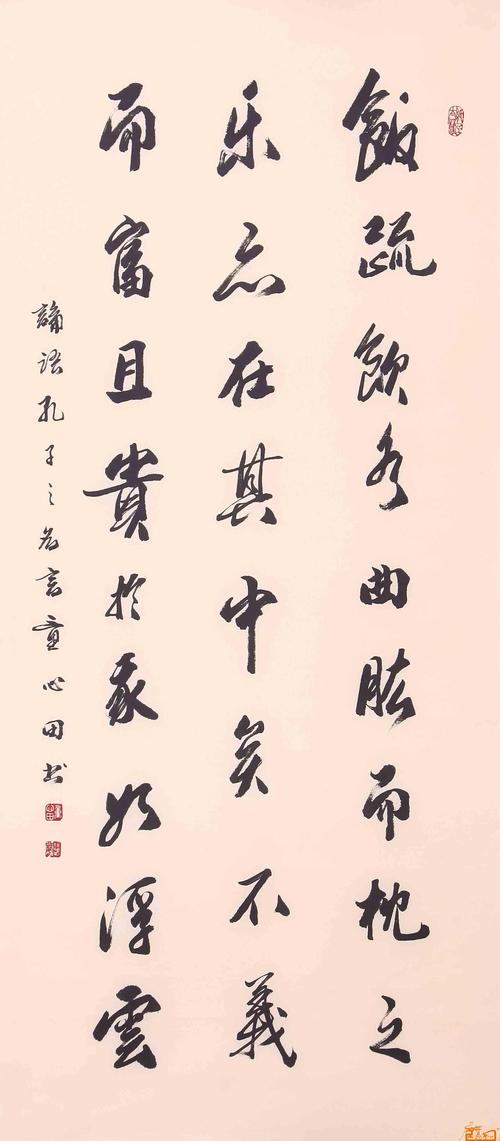 飯疏飲水曲肱而枕之
乐亦在其中矣不義
而富且貴於我如浮雲
論語孔子之名言童心田书